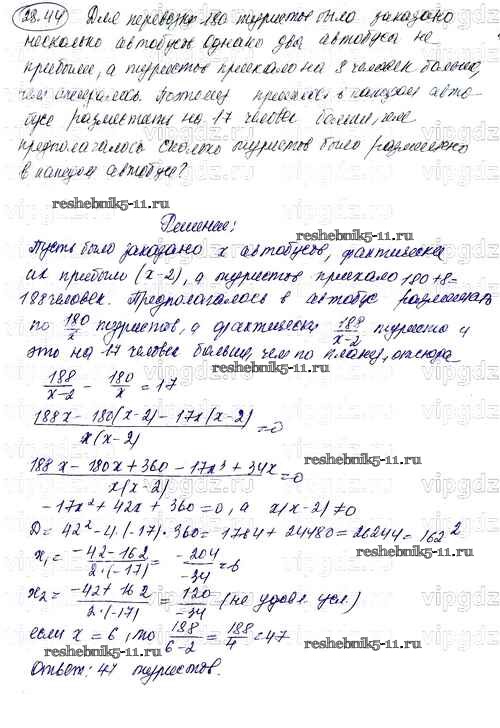 28.44 Для перевозки 180 туристов было заказано
несколько автобусов однако два автобуса не
прибыли, а туристов приехало на 8 человек больше,
чем ожидалось. Поэтому пришлось в каждом авто-
бусе разместить на 17 человек больше, чем
предполагалось сколько туристов было размещено
в каждом автобусе?
reshebnik5-11.ru
Решение:
Пусть было заказано x автобусов, фактически
их прибыло (x-2), а туристов приехало 180+8=
188 человек. Предполагалось в автобус размещать
по 180/x туристов, а фактически 188/x-2 туриста и
это на 17 человек больше, чем по плану, отсюда
188/x-2 - 180/x = 17
reshebnik5-11.ru
188x - 180(x-2) - 17x(x-2)/x(x-2) = 0
188x - 180x + 360 - 17x² + 34x/x(x-2) = 0
reshebnik5-11.ru
-17x² + 42x + 360 = 0, а x(x-2) ≠ 0
D = 42² - 4·(-17)·360 = 1764 + 24480 = 26244 = 162²
x₁ = -42-162/2·(-17) = -204/-34 = 6
reshebnik5-11.ru
x₂ = -42+162/2·(-17) = 120/-34 (не удовл. усл.)
если x = 6, то 188/6-2 = 188/4 = 47
reshebnik5-11.ru
Ответ: 47 туристов.
reshebnik5-11.ru